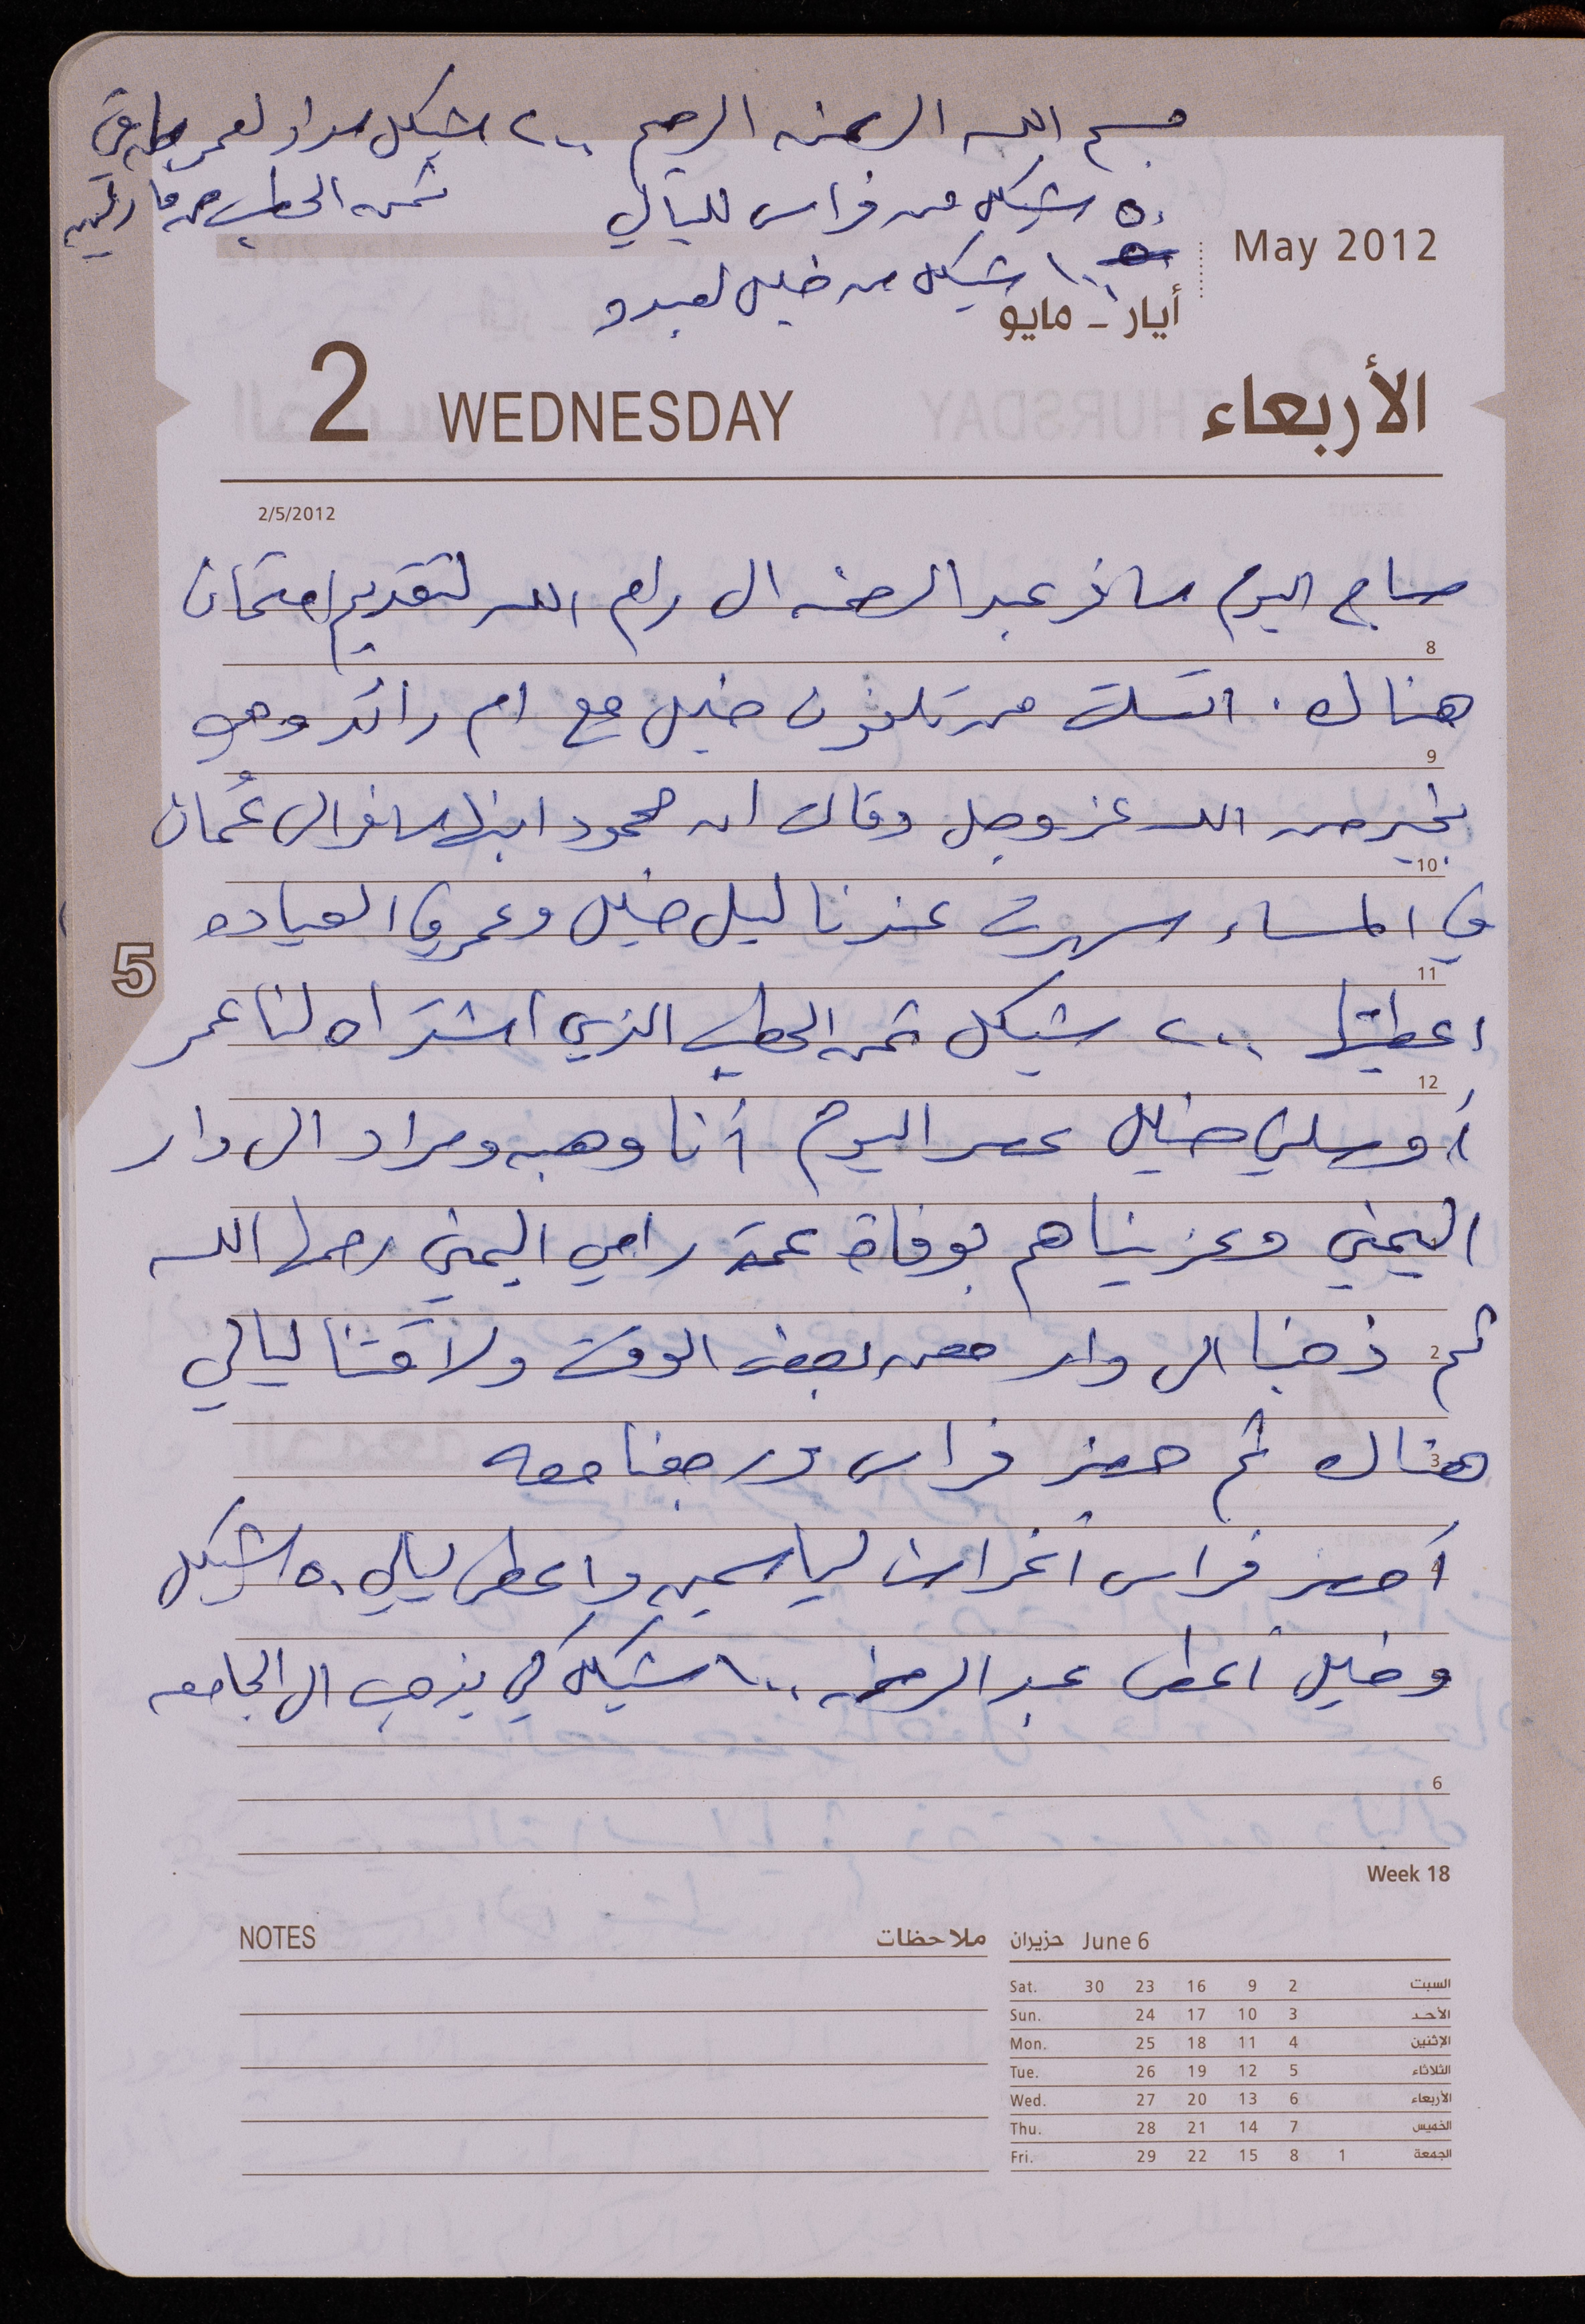 بسم الله الرحمن الرحيم ٢٠٠ شيكل سداد لعمر
٥٠ شيكل من فراس لليالي ثمن الحطب من
١٠٠ شيكل من خليل لعبدو
May 2012
أيار - مايو
2 WEDNESDAY الأربعاء
2/5/2012
صباح اليوم سافر عبد الرحمن الى رام الله لتقديم امتحان
8
هناك . اتصلت من تلفون خليل مع ام رائد وهي
9
بخير من الله عز وجل وقالت ان محمود ابنها سافر الى عُمان
10
في المساء سهرت عندنا ليل خليل وعمر في العياده
5
11
اعطيتها ٢٠٠ شيكل ثمن الحطب الذي اشتراه لنا عمر
12
أوصلني خليل عصر اليوم أنا وهبه ومراد الى دار
اليمني وعزيناهم بوفاة عمة رامي اليمني رحمها الله
ثم ذهبنا الى دار معن بعض الوقت ولاقتنا ليالي
2
هناك ثم حضر فراس ورجعنا معه
3
أحضر فراس أغراض لياسمين واعطى ليالي ٥٠ شيكل
4
وخليل أعطى عبد الرحمن ١٠٠ شيكل كي يذهب الى الجامعه
6
Week 18
NOTES ملاحظات
حزيران June 6
Sat. 30 23 16 9 2 السبت
Sun. 24 17 10 3 الأحد
Mon. 25 18 11 4 الإثنين
Tue. 26 19 12 5 الثلاثاء
Wed. 27 20 13 6 الأربعاء
Thu. 28 21 14 7 الخميس
Fri. 29 22 15 8 1 الجمعة